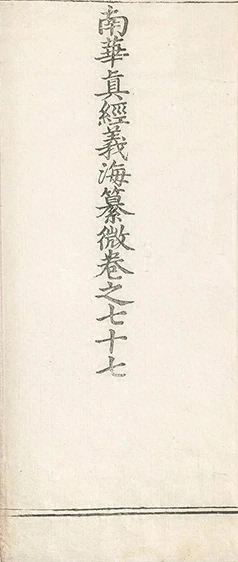 南華真經義海纂微卷之七十七